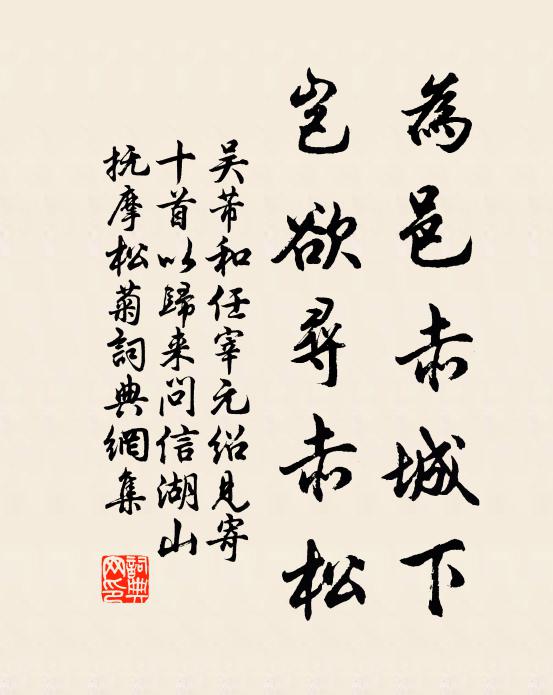 為邑赤城下
豈欲尋赤松
吴芾和任宰元绍見寄
十首以歸来问信湖山
抚摩松菊詞典網集
詞典网印